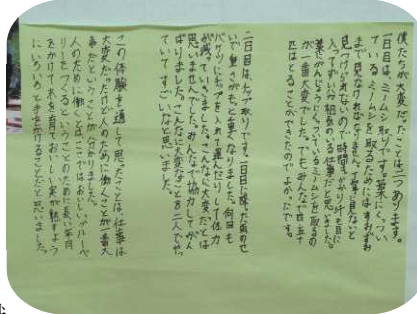 僕たちが大変だったことは二つあります。
一日目は、ミノムシ取りです。葉にくっつい
ているミノムシを取るためにはすみずみ
まで見なければなりません。丁寧に見ないと
見つけられないので時間もかかり汗も目に
入ってすごい力組のいる仕事だと思いました。
葉にがんじょうにくっついているミノムシを取るの
が一番大変でした。でもみんなで百五十
匹ほどとることができたのでよかったです。
二日目は、チップ取りです。一日目に降った雨のせ
いで重さがもっと重くなりました。何回も
バケツにチップを入れて運んだりして体力
が減っていきました。こんなに大変だとは
思いませんでした。みんなで協力してがん
ばりました。こんなに大変なことを二人でやっ
ていてすごいなと思いました。
この体験を通して思ったことは、仕事は
大変だったけど人のために働くことが一番大
事だということが分かりました。
人のために働くとはここではおいしいブルーベ
リーをつくるということのために長い年月
をかけて木を育ておいしい実が熟すよう
にいろいろと手を加けることだと思いました。